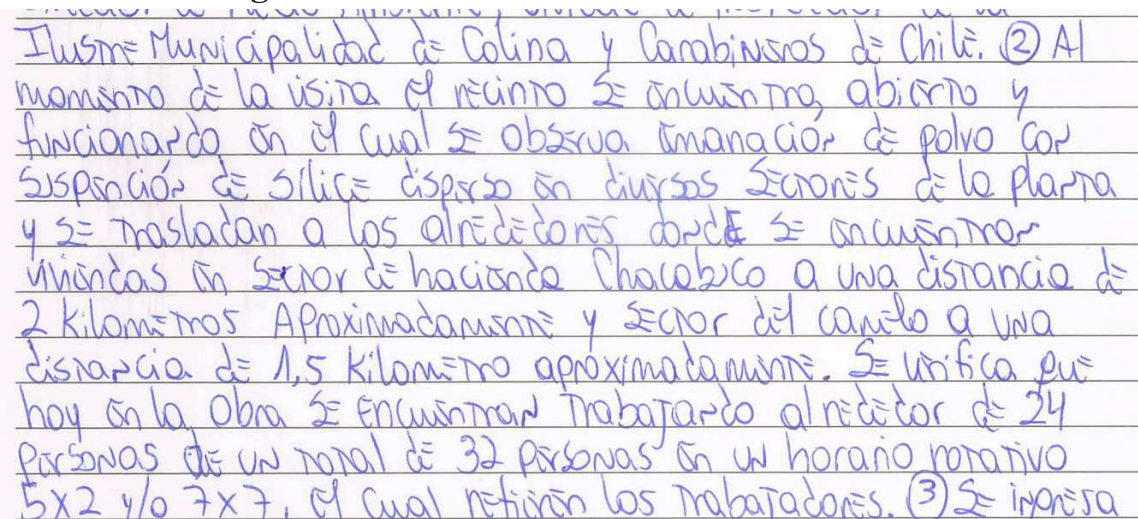 Ilustre Municipalidad de Colina y Carabineros de Chile. ② Al
momento de la visita el recinto se encuentra, abierto y
funcionando en el cual se observa emanación de polvo con
suspención de sílice disperso en diversos sectores de la planta
y se trasladan a los alrededores donde se encuentran
viviendas en sector de hacienda Chacabuco a una distancia de
2 kilometros Aproximadamente y sector del canelo a una
distancia de 1,5 kilometro aproximadamente. Se verifica que
hoy en la Obra se encuentran trabajando alrededor de 24
personas de un total de 32 personas en un horario rotativo
5x2 y/o 7x7, el cual refieren los trabajadores. ③ Se ingresa